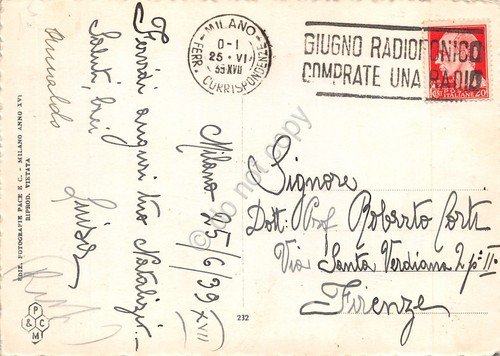 Fervidi auguri tuo Natalizio -
Saluti, bai
Arnaldo
Luisa
Milano 25/6/39 XVII
EDIZ. FOTOGRAFIE PACE E C. - MILANO ANNO XVI
RIPROD. VIETATA
P & C M
232
MILANO
0-1
25 · VI
39 XVII
FERR. CORRISPONDENZE
GIUGNO RADIOFONICO
COMPRATE UNA RADIO
Signore
Dott. Prof Roberto Corti
Via Santa Verdiana 2 pº IIº
Firenze
do not copy